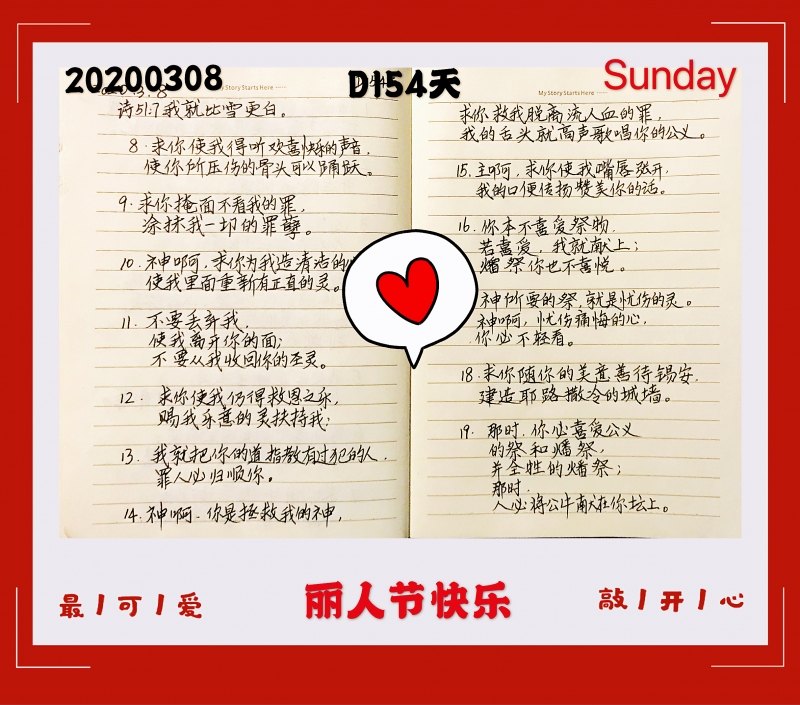 20200308
D154天
Sunday
My Story Starts Here ······
My Story Starts Here ······
诗51:7 我就比雪更白。
8. 求你使我得听欢喜快乐的声音,
使你所压伤的骨头可以踊跃。
9. 求你掩面不看我的罪,
涂抹我一切的罪孽。
10. 神啊,求你为我造清洁的
使我里面重新有正直的灵。
11. 不要丢弃我,
使我离开你的面;
不要从我收回你的圣灵。
12. 求你使我仍得救恩之乐,
赐我乐意的灵扶持我;
13. 我就把你的道指教有过犯的人,
罪人必归顺你。
14. 神啊、你是拯救我的神,
求你救我脱离流人血的罪,
我的舌头就高声歌唱你的公义。
15. 主啊,求你使我嘴唇张开,
我的口便传扬赞美你的话。
16. 你本不喜爱祭物,
若喜爱,我就献上;
燔祭你也不喜悦。
神所要的祭,就是忧伤的灵。
神啊,忧伤痛悔的心,
你必不轻看。
18. 求你随你的美意善待锡安,
建造耶路撒冷的城墙。
19. 那时,你必喜爱公义
的祭和燔祭,
并全牲的燔祭;
那时
人必将公牛献在你坛上。
最丨可丨爱
丽人节快乐
敲丨开丨心